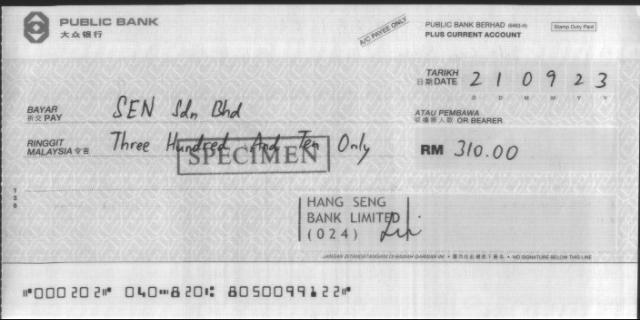 PUBLIC BANK
大众银行
A/C PAYEE ONLY
PUBLIC BANK BERHAD (6463-H)
PLUS CURRENT ACCOUNT
Stamp Duty Paid
TARIKH
日期 DATE 2 1 0 9 2 3
D D M M Y Y
BAYAR
祈交 PAY SEN Sdn Bhd
ATAU PEMBAWA
OR BEARER
RINGGIT
MALAYSIA 令吉 Three Hundred And Ten Only
RM 310.00
SPECIMEN
HANG SENG
BANK LIMITED
(024)
JANGAN DITANDATANGAN DI BAWAH GARISAN INI • NO SIGNATURE BELOW THIS LINE
⑈000202⑈ 040⑉820⑆ 8050099122⑈